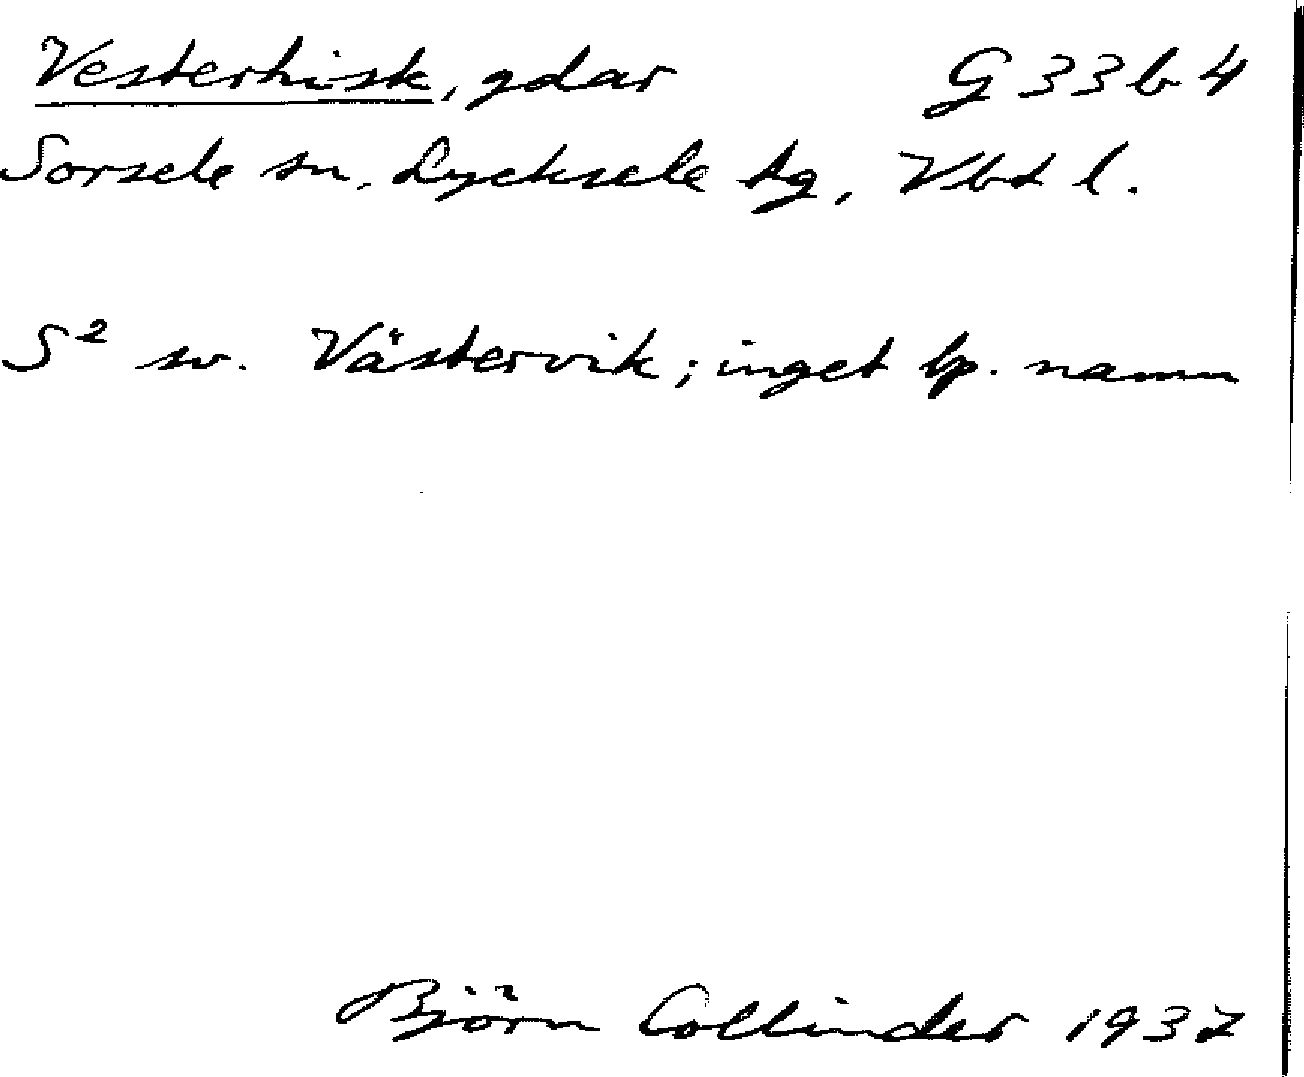 Vesterhisk, gdar G 33 b 4
Sorsele sn, Lycksele tg, Vbt l.
S² sv. Västervik; inget lp. namn
Björn Collinder 1937